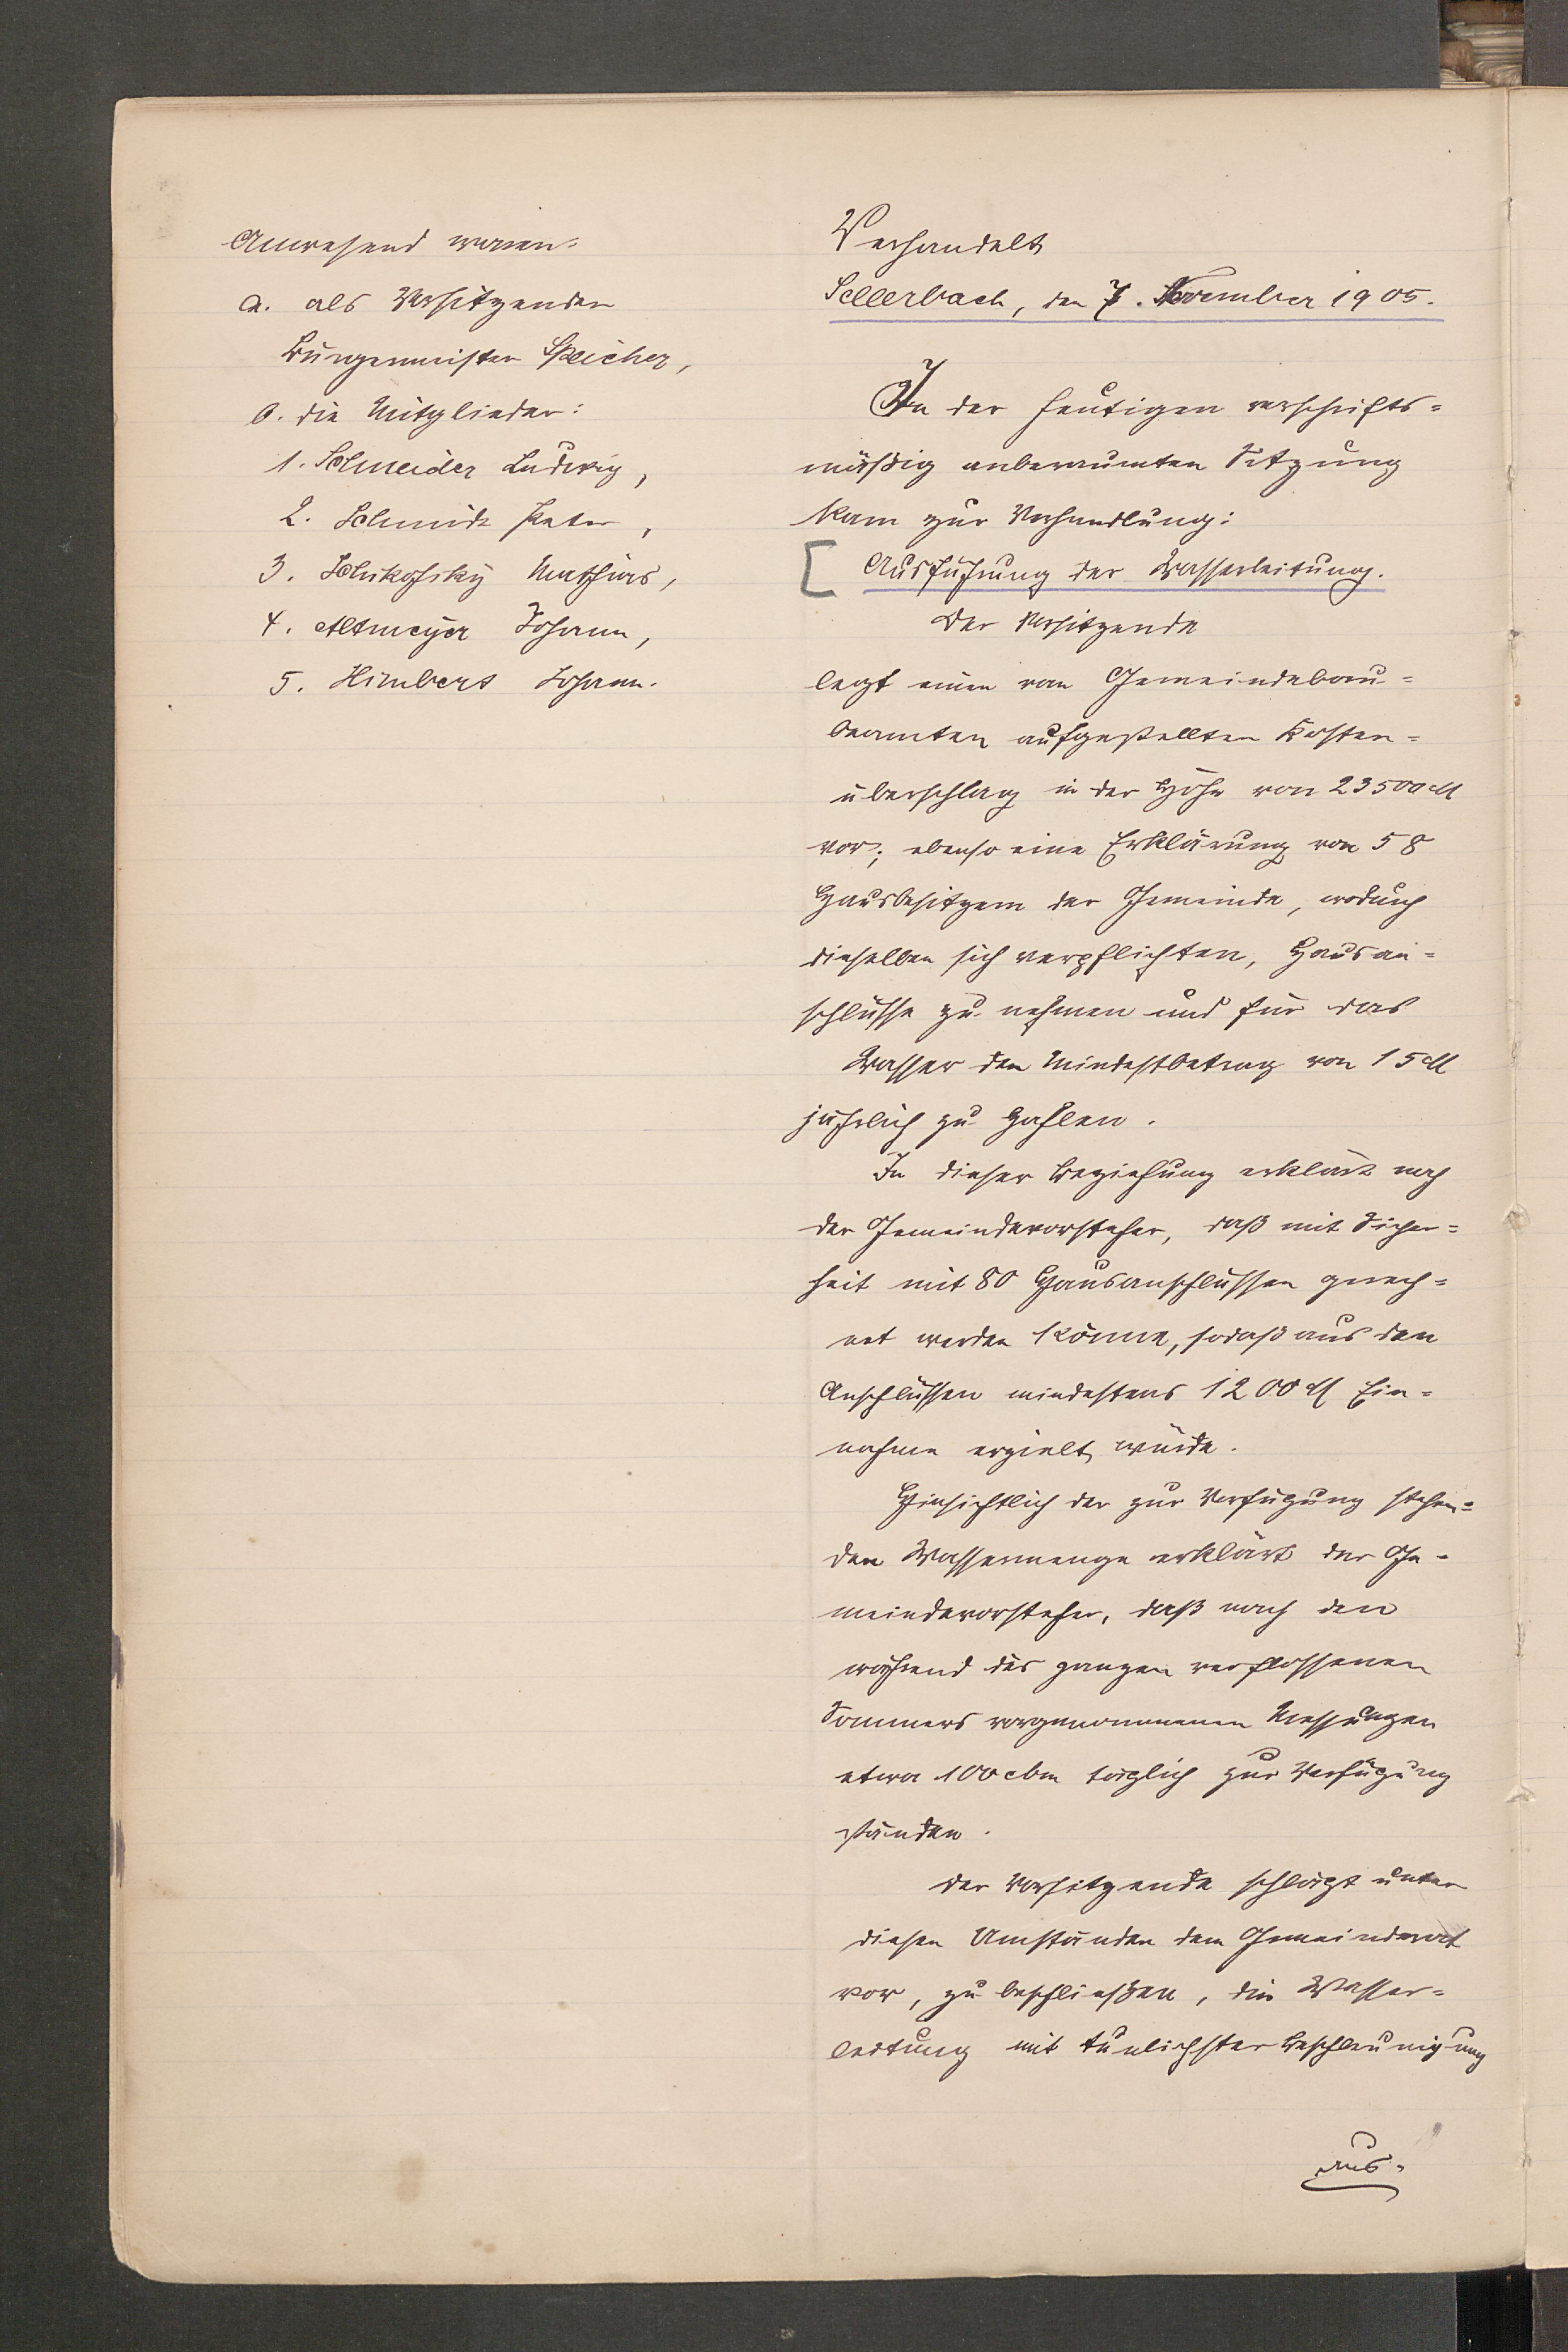 Anwesend waren:
a. als Vorsitzender
Bürgermeister Speicher,
b. die Mitglieder:
1. Schneider Ludwig,
2. Schmidt Peter,
3. Schikofsky Mathias,
4. Altmeyer Johann,
5. Himbert Johann.
Verhandelt
Sellerbach, den 7. November 1905.
In der heutigen vorschrifts=
mäßig anberaumten Sitzung
kam zur Verhandlung:
Ausführung der Wasserleitung.
Der Vorsitzende
legt einen vom Gemeindebau=
beamten aufgestellten Kosten=
überschlag in der Höhe von 23500 M
vor; ebenso eine Erklärung von 58
Hausbesitzern der Gemeinde, wodurch
dieselben sich verpflichten, Hausan=
schlüsse zu nehmen und für das
Wasser den Mindestbetrag von 15 M
jährlich zu zahlen.
In dieser Beziehung erklärt noch
der Gemeindevorsteher, daß mit Sicher=
heit mit 80 Hausanschlüssen gerech=
net werden könne, sodaß aus den
Anschlüssen mindestens 1200 M Ein=
nahme erzielt würde.
Hinsichtlich der zur Verfügung stehen=
den Wassermenge erklärt der Ge=
meindevorsteher, daß nach den
während des ganzen verflossenen
Sommers vorgenommenen Messungen
etwa 100 cbm täglich zur Verfügung
ständen.
Der Vorsitzende schlägt unter
diesen Umständen dem Gemeinderat
vor, zu beschließen, die Wasser=
leitung mit tunlichster Beschleunigung
aus=